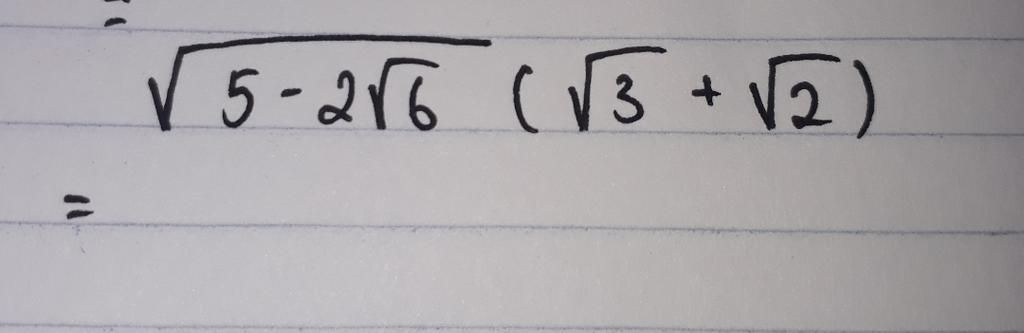 =
√(5-2√6) (√3 + √2)
=